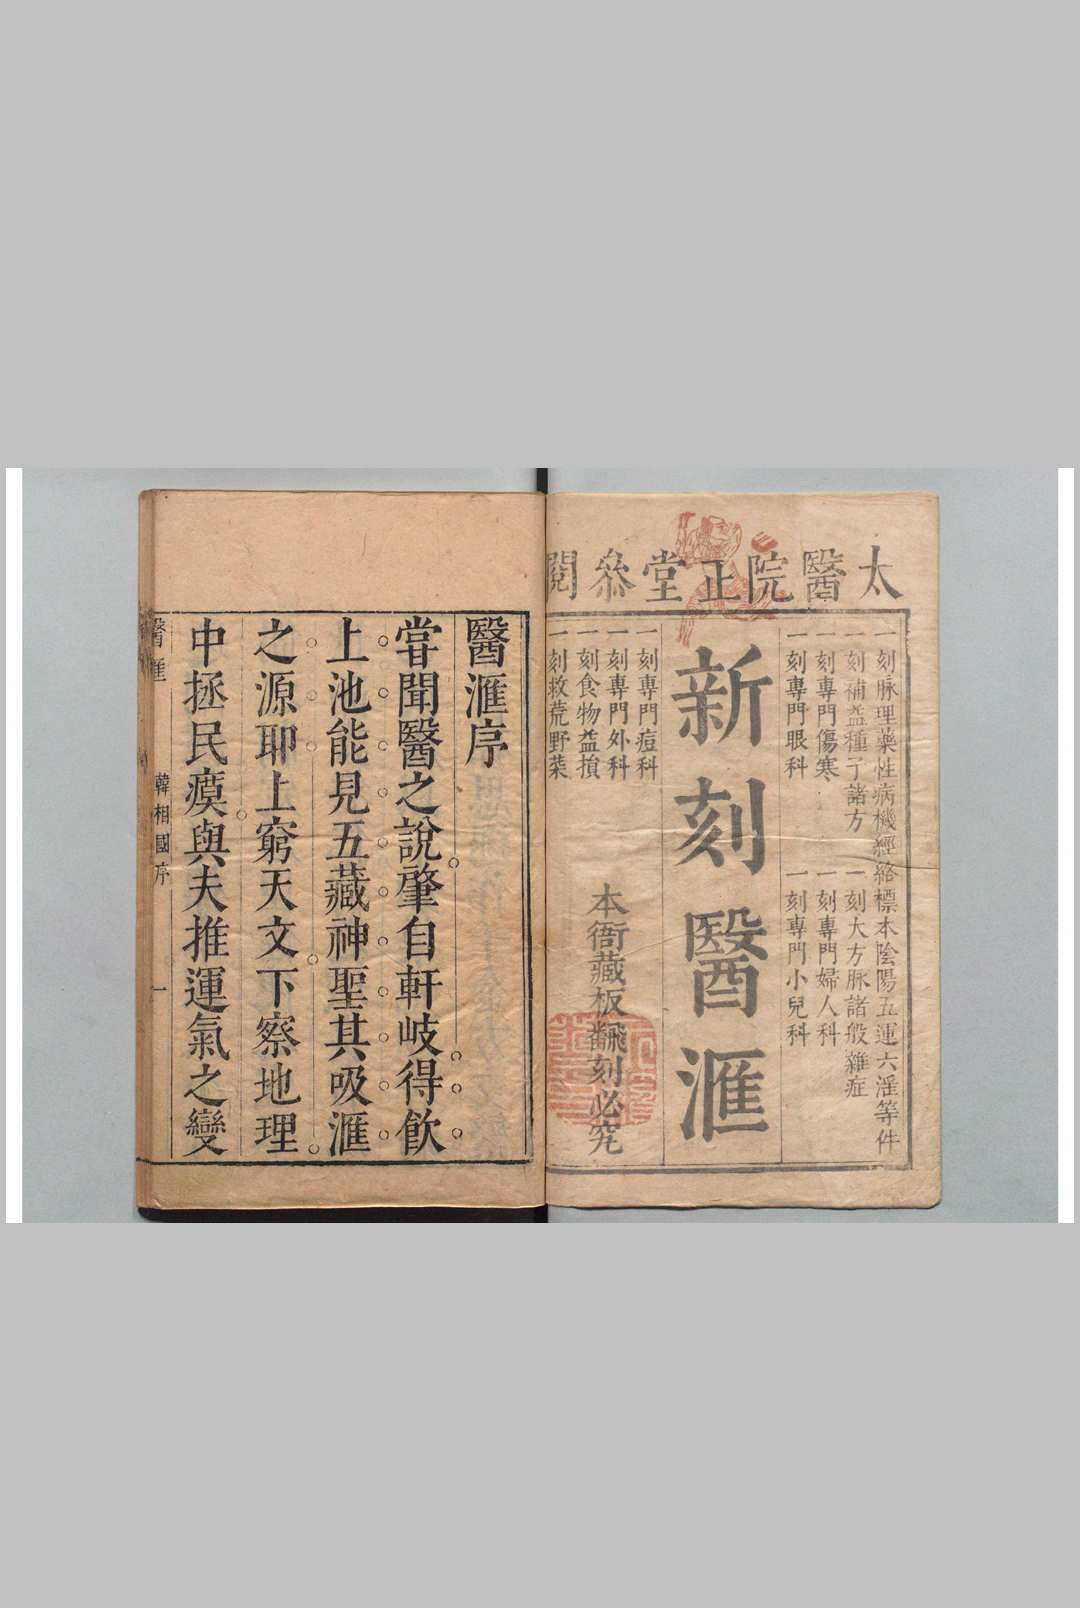 太醫院正堂叅閱
一刻脉理藥性病機經絡標本陰陽五運六淫等件
一刻補益種子諸方
一刻大方脉諸般雜症
一刻專門傷寒
一刻專門婦人科
一刻專門眼科
一刻專門小兒科
新刻醫滙
一刻專門痘科
一刻專門外科
一刻食物益損
一刻救荒野菜
本衙藏板飜刻必究
醫滙序
甞聞醫之說肇自軒岐得飲
上池能見五藏神聖其吸滙
之源耶上窮天文下察地理
中拯民瘼與夫推運氣之變
醫滙
韓相國序
一